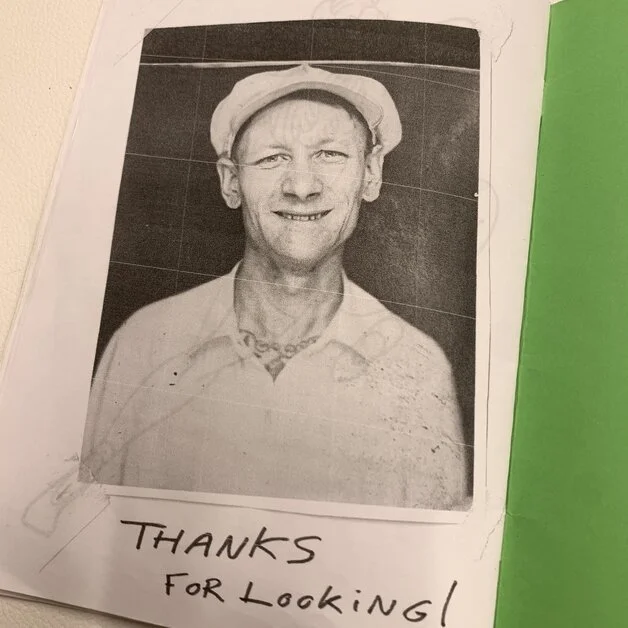 THANKS
FOR LOOKING!